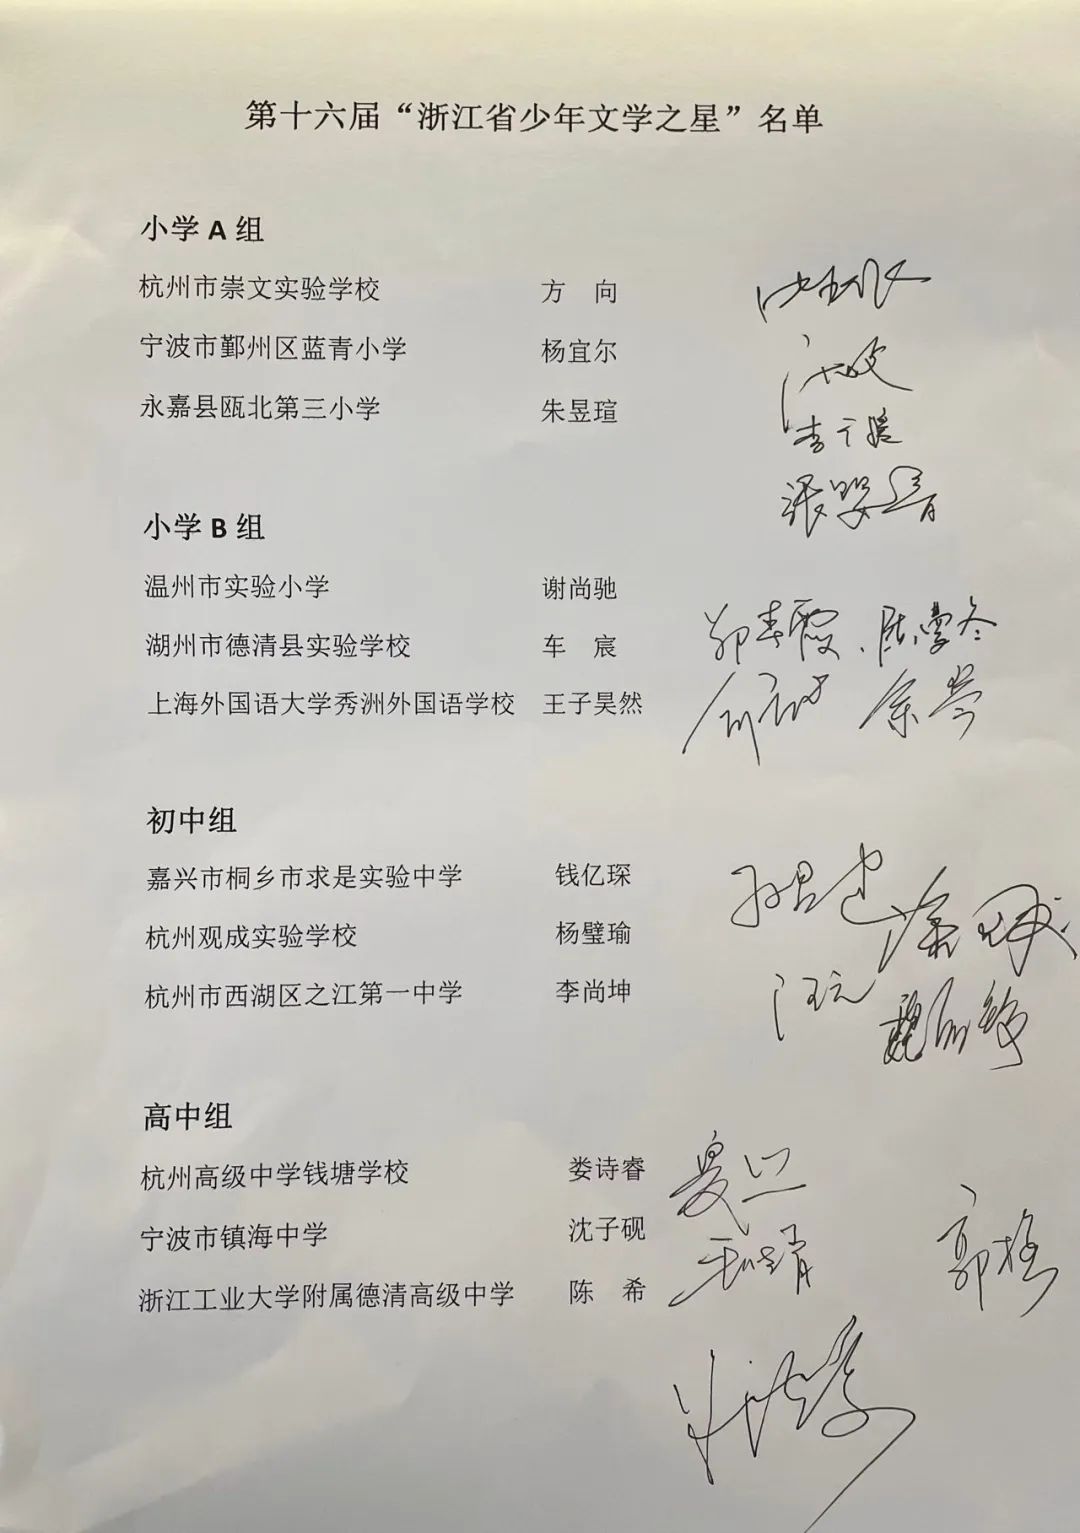 第十六届“浙江省少年文学之星”名单
小学 A 组
杭州市崇文实验学校 方 向
宁波市鄞州区蓝青小学 杨宜尔
永嘉县瓯北第三小学 朱昱瑄
张婴音
小学 B 组
温州市实验小学 谢尚驰
湖州市德清县实验学校 车 宸
郑春霞
上海外国语大学秀洲外国语学校 王子昊然
初中组
嘉兴市桐乡市求是实验中学 钱亿琛
孙昌建
杭州观成实验学校 杨璧瑜
杭州市西湖区之江第一中学 李尚坤
高中组
杭州高级中学钱塘学校 娄诗睿
宁波市镇海中学 沈子砚
浙江工业大学附属德清高级中学 陈 希